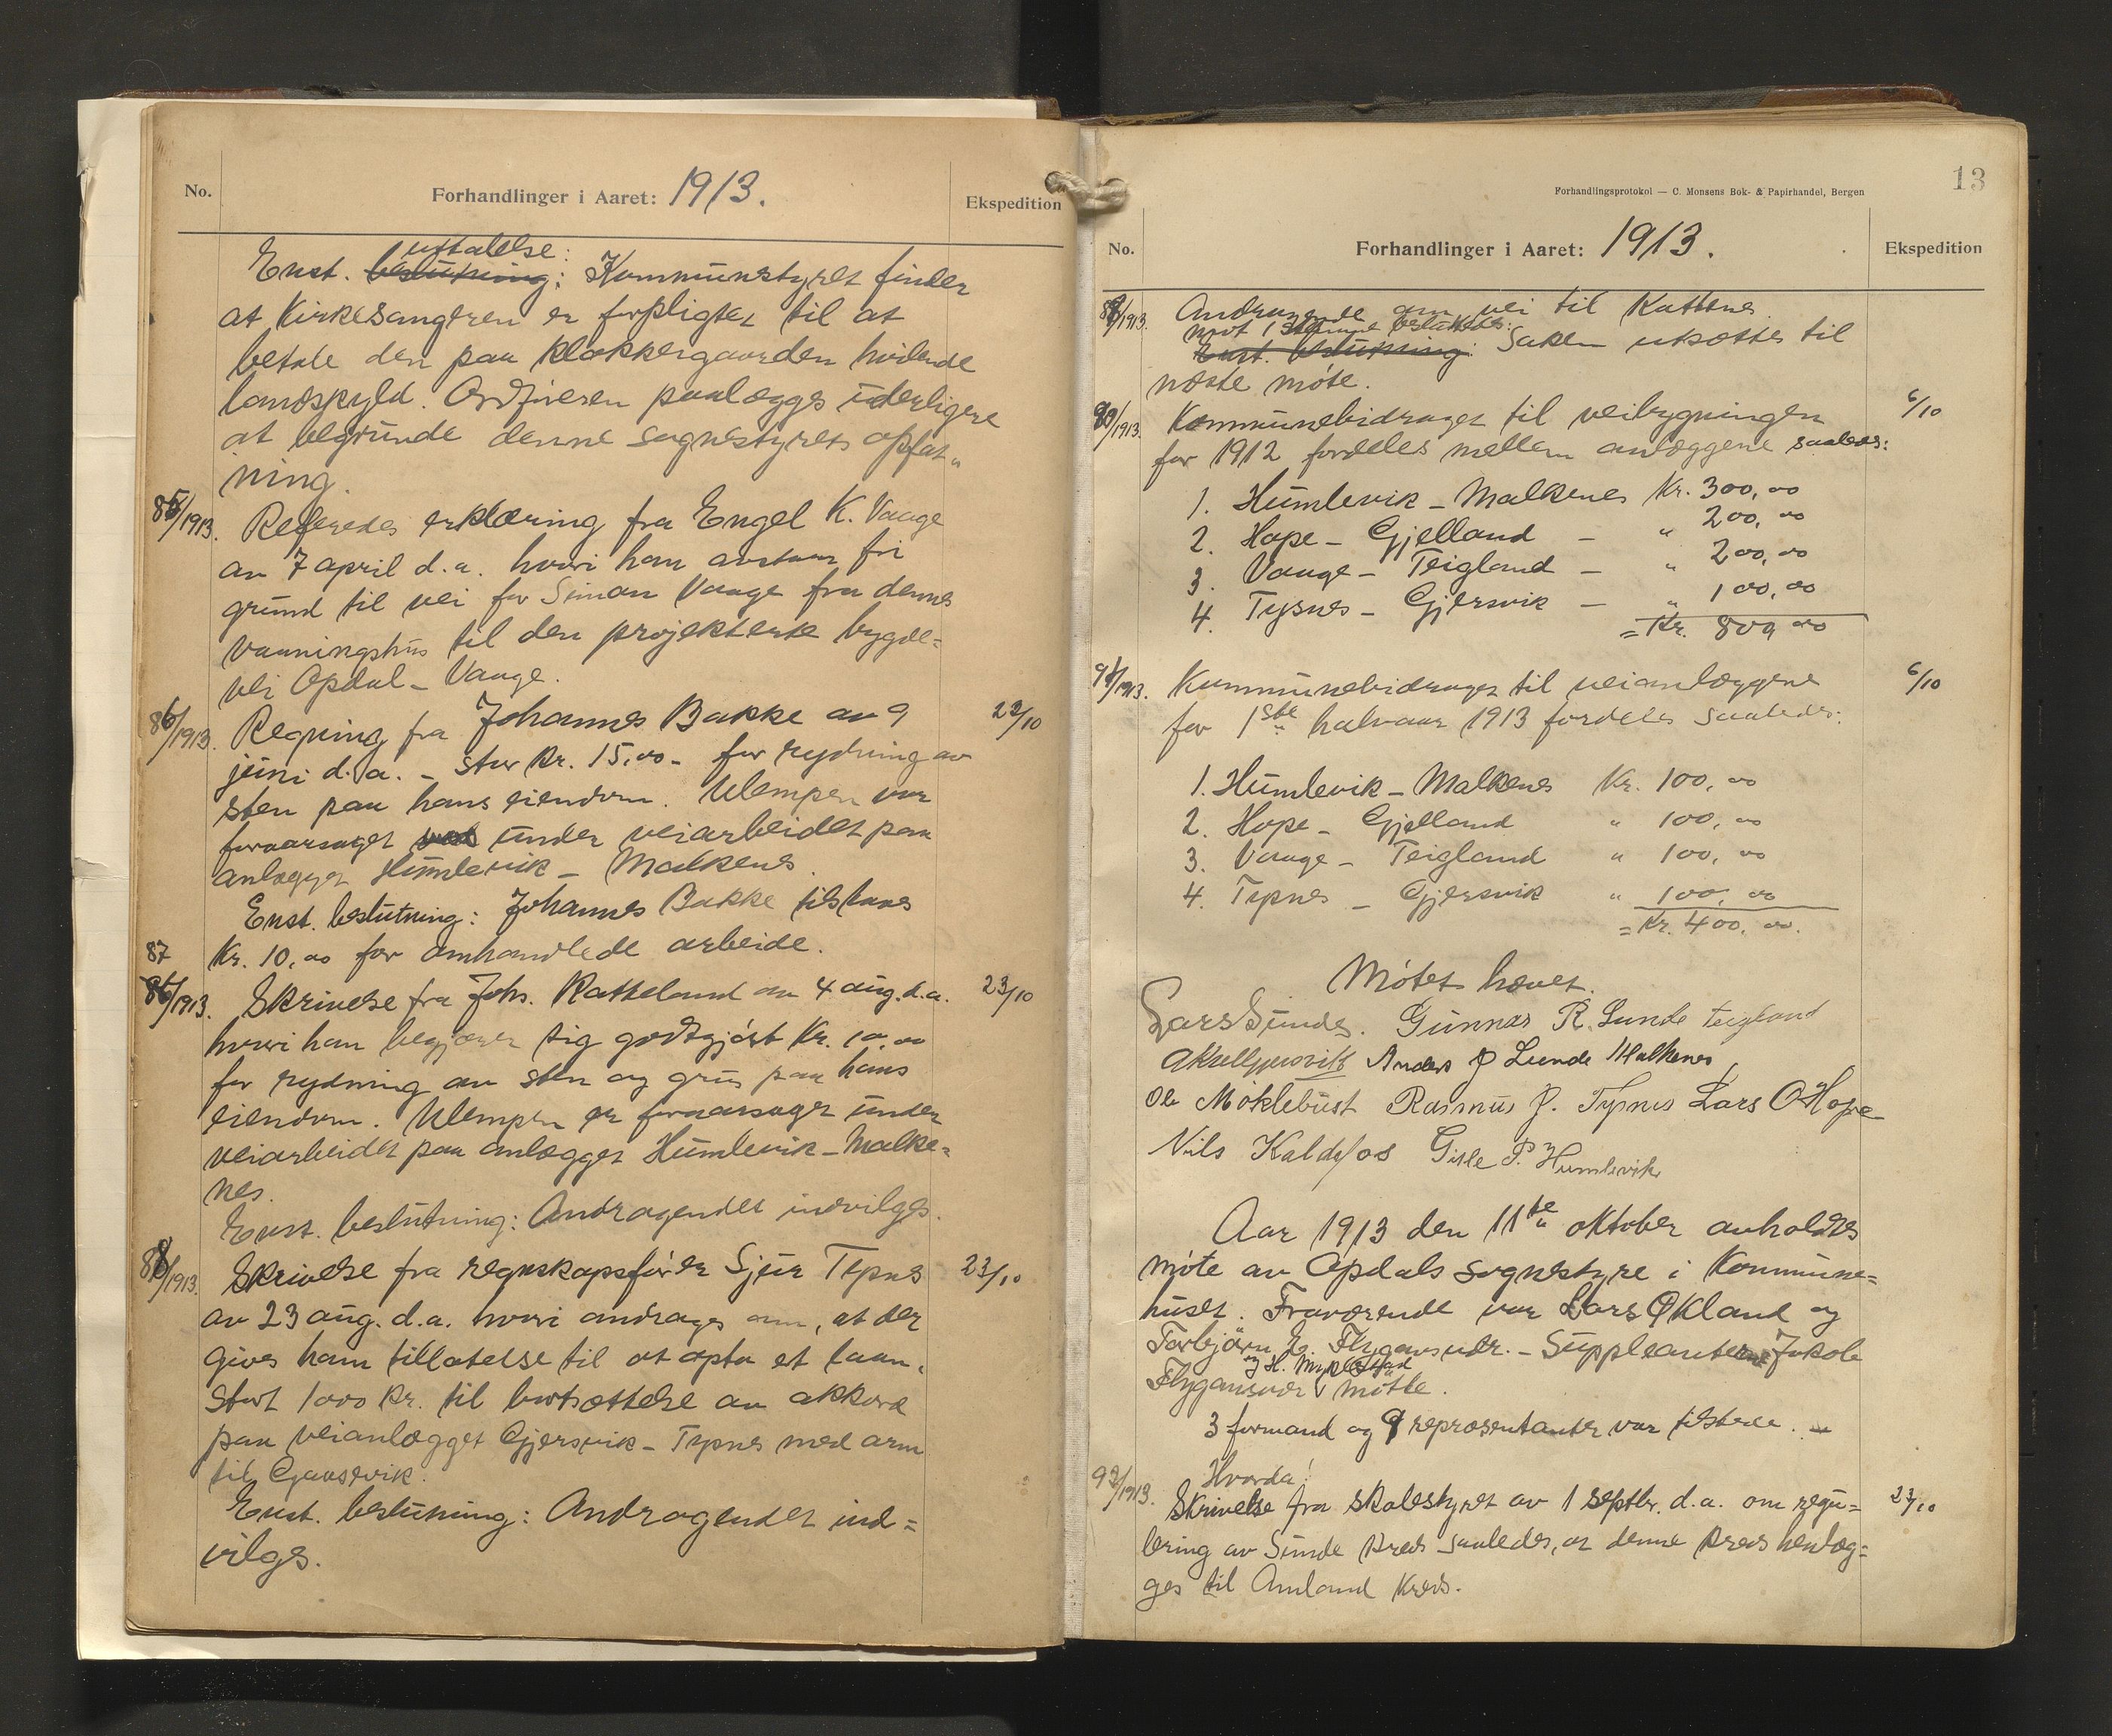 No.
Forhandlinger i Aaret: 1913.
Ekspedition
uttalelse:
Enst. beslutning: Kommunestyret finder
at Kirkesangeren er forpligtet til at
betale den paa klokkergaarden hvilende
landskyld. Ordføreren paalægges yderligere
at begrunde denne sognestyrets opfat„
ning.
85/1913. Referedes erklæring fra Engel K. Vaage
av 7 april d.a. hvori han avstaar fri
grund til vei for Simon Vaage fra dennes
vaaningshus til den projekterte bygde=
vei Opdal - Vaage.
86/1913. Regning fra Johannes Bakke av 9 23/10
juni d.a. - stor kr. 15,00 - for rydning av
sten paa hans eiendom. Ulempen var
foraarsaget ved under veiarbeidet paa
anlægget Humlevik - Malkenes.
Enst. beslutning: Johannes Bakke tilstaaes
Kr. 10,00 for omhandlede arbeide.
87
86/1913. Skrivelse fra Johs. Rakkeland av 4 aug. d.a. 23/10
hvori han begjærer sig godtgjort Kr. 10,00
for rydning av sten og grus paa hans
eiendom. Ulempen er foraarsaget under
veiarbeidet paa anlægget Humlevik - Malke=
nes.
Enst. beslutning: Andragendet indvilges.
88/1913. Skrivelse fra regnskapsfører Sjur Tysnes 23/10
av 23 aug. d.a. hvori andrages om, at der
gives ham tillatelse til at opta et laan,
stort 1000 kr. til bortsættelse av akkord
paa veianlægget Gjersvik - Tysnes med arm
til Gaasevik.
Enst. beslutning: Andragendet ind=
vilges.
13
Forhandlingsprotokol — C. Monsens Bok- & Papirhandel, Bergen
No.
Forhandlinger i Aaret: 1913.
Ekspedition
89/1913. Andragende om vei til Kattnes.
mot 1 stemme besluttedes:
Enst. beslutning: Saken utsættes til
næste møte.
90/1913. Kommunebidraget til veibygningen 6/10
for 1912 fordeles mellem anlæggene saaledes:
1. Humlevik - Malkenes Kr. 300,00
2. Hope - Gjelland - " 200,00
3. Vaage - Teigland - " 200,00
4. Tysnes - Gjersvik - " 100,00
= Kr. 800 00
91/1913. Kommunebidraget til veianlæggene 6/10
for 1ste halvaar 1913 fordeles saaledes:
1. Humlevik - Malkenes Kr. 100,00
2. Hope - Gjelland " 100,00
3. Vaage - Teigland " 100,00
4. Tysnes - Gjersvik " 100,00
= Kr. 400,00.
Møtet hævet.
Lars Sunde. Gunnar R. Lunde Teigland
Anders J Lunde Malkenes
Ole Møklebust Rasmus J. Tysnes Lars O Hope
Nils Kaldefos Gisle P. Humlevik
Aar 1913 den 11te oktober avholdtes
møte av Opdals sognestyre i Kommune=
huset. Fraværende var Lars Økland og
Torbjørn L. Flygansvær. - Suppleanterne Jakob
J H. Myklestad
Flygansvær V møtte.
3 formænd og 9 repræsentanter var tilstede. -
Hvorda!
92/1913. Skrivelse fra skolestyret av 1 septbr. d.a. om regu= 23/10
lering av Sunde kreds saaledes, at denne kreds henlæg=
ges til Amland Kreds.